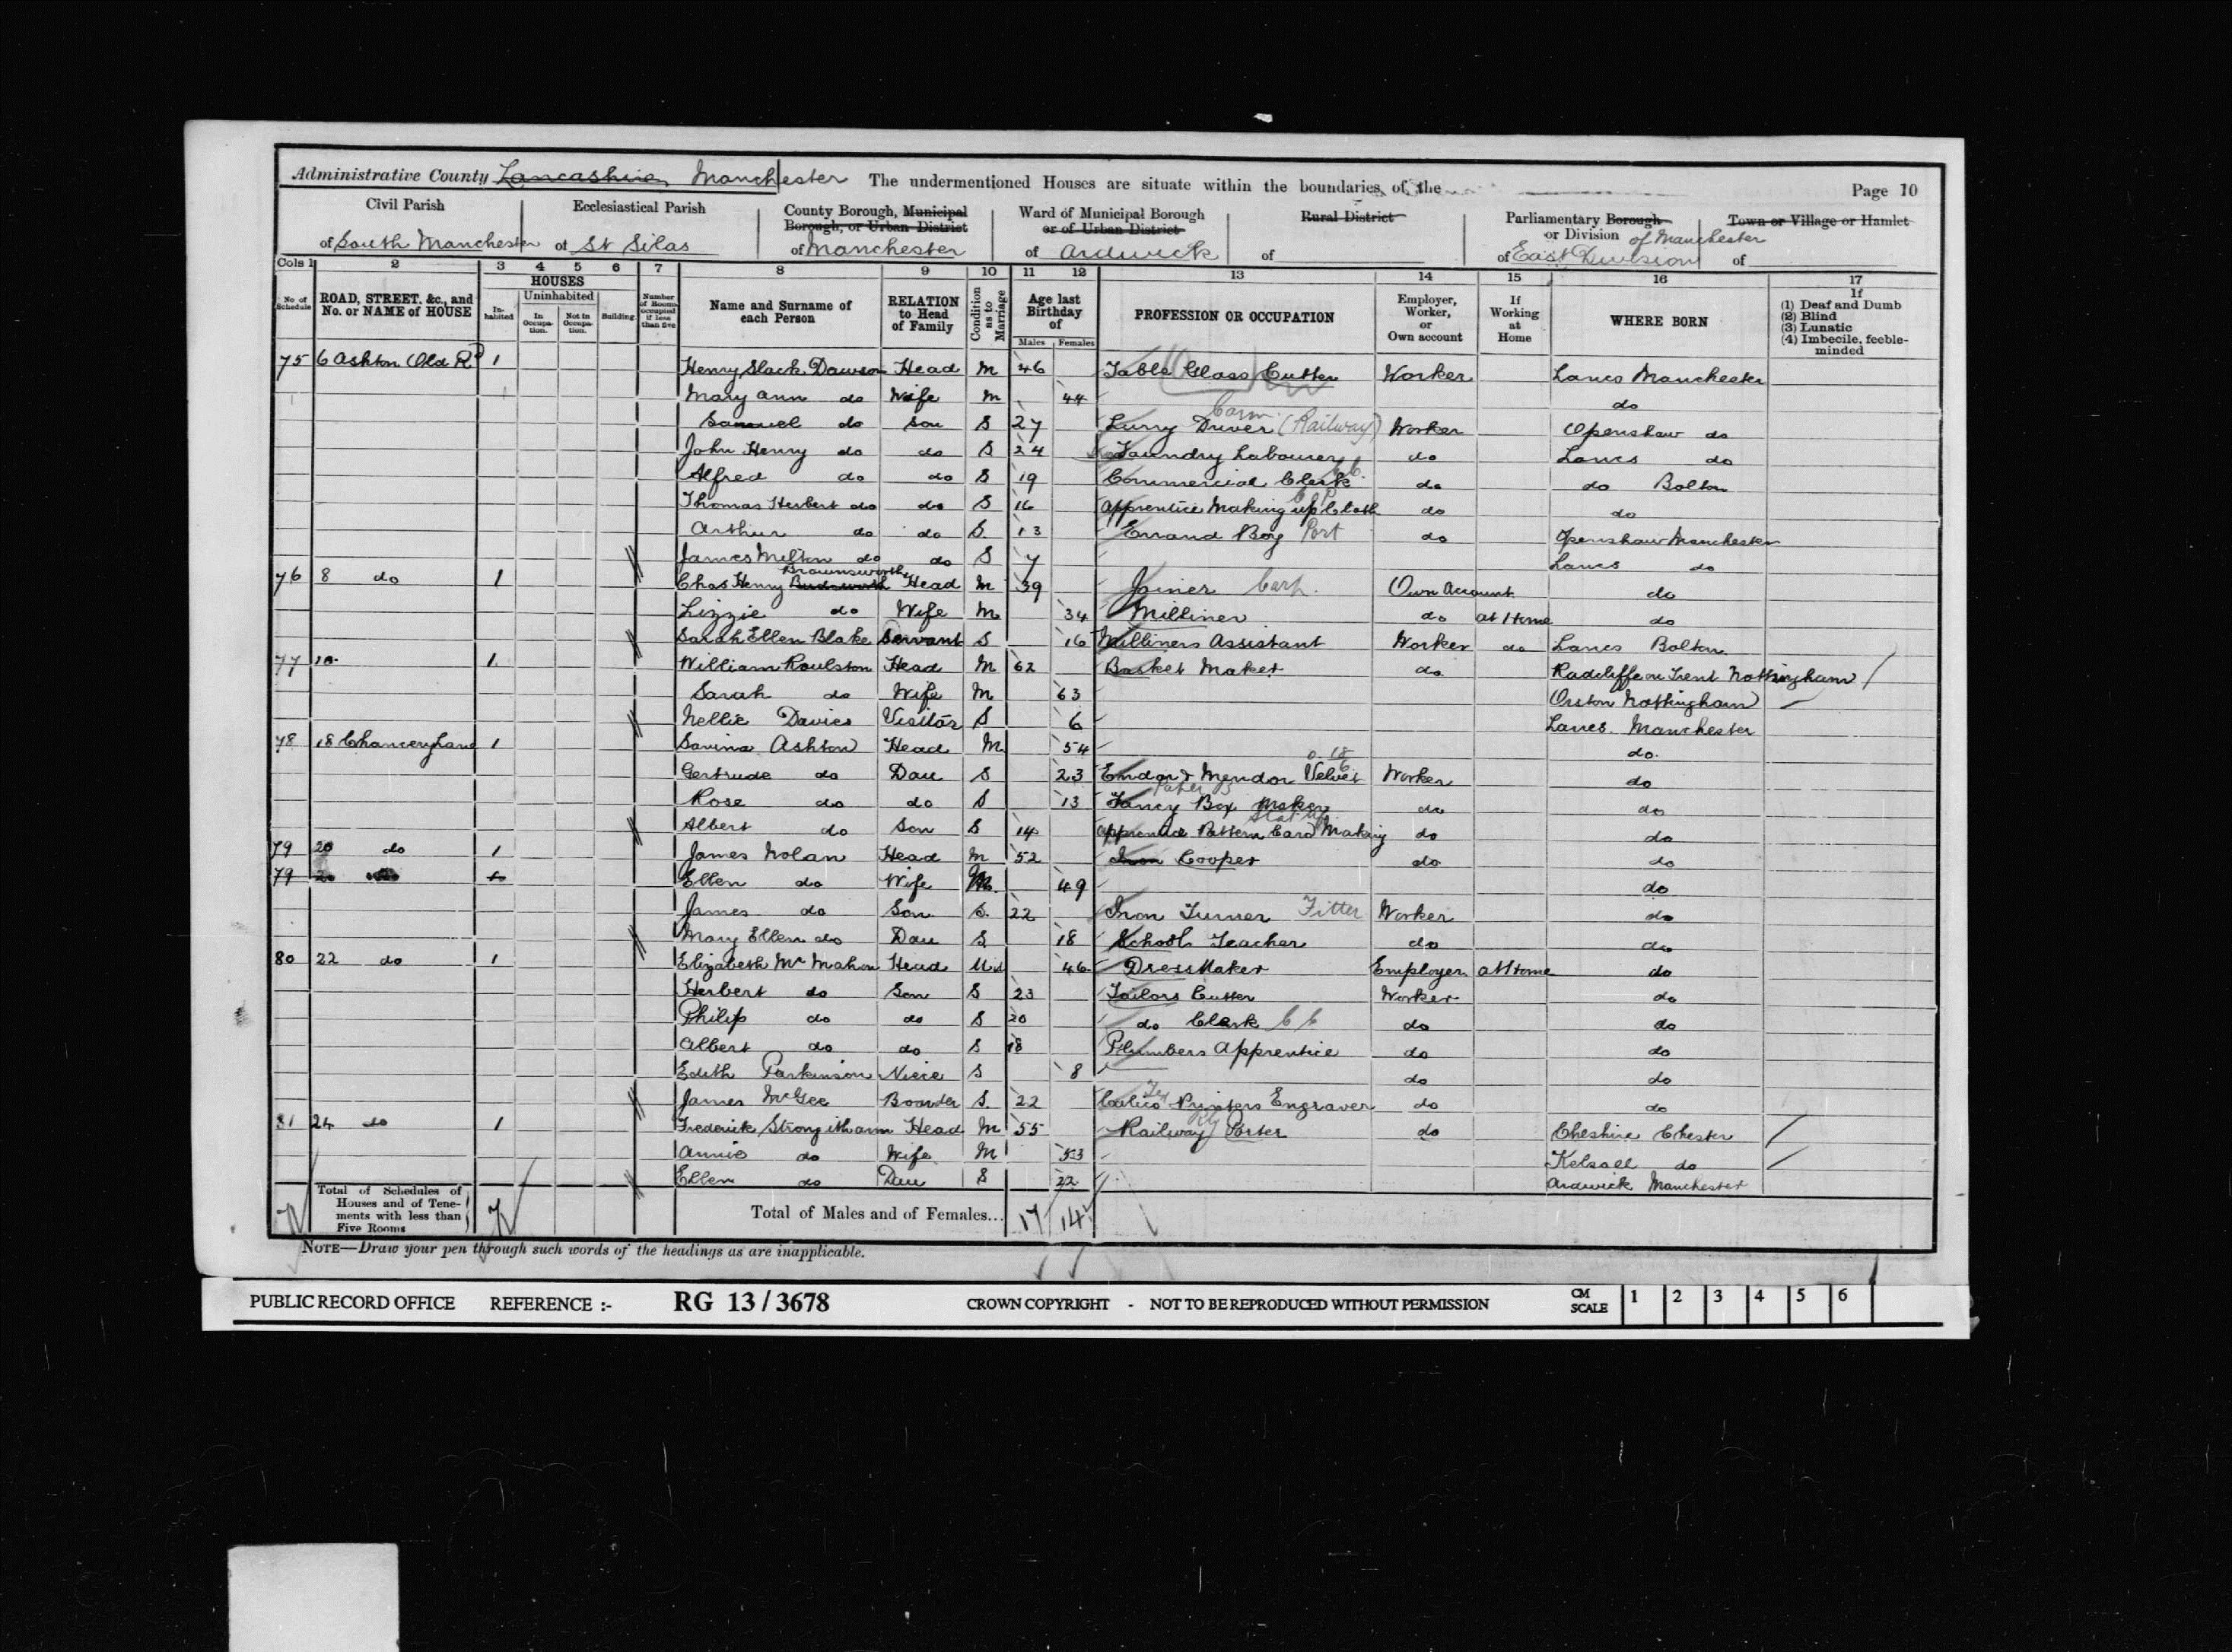 Administrative County Lancashire Manchester The undermentioned Houses are situate within the boundaries of the Page 10
Civil Parish Ecclesiastical Parish County Borough, Municipal Borough, or Urban District Ward of Municipal Borough or of Urban District Rural District Parliamentary Borough or Division of Manchester Town or Village or Hamlet
of South Manchester of St Silas of Manchester of Ardwick of of East Division of
Cols 1 2 3 4 5 6 7 8 9 10 11 12 13 14 15 16 17
No of Schedule ROAD, STREET, &c., and No. or NAME of HOUSE HOUSES Inhabited Uninhabited In Occupation. Not in Occupation. Building. Number of Rooms occupied if less than five Name and Surname of each Person RELATION to Head of Family Condition as to Marriage Age last Birthday of Males Females PROFESSION OR OCCUPATION Employer, Worker, or Own account If Working at Home WHERE BORN If (1) Deaf and Dumb (2) Blind (3) Lunatic (4) Imbecile, feeble-minded
75 6 Ashton Old Rd 1 Henry Slack Dawson Head M 46 Table Glass Cutter Worker Lancs Manchester
Mary Ann do Wife M 44 do
Samuel do Son S 27 Lurry Driver (Railway) Carm. Worker Openshaw do
John Henry do do S 24 Foundry Labourer do Lancs do
Alfred do do S 19 Commercial Clerk do do Bolton
Thomas Herbert do do S 16 Apprentice Making up Cloth do do
Arthur do do S. 13 Errand Boy Port do Openshaw Manchester
James Milton do do S 7 Lancs do
76 8 do 1 Chas Henry Brownsworth Head M 39 Joiner Carp. Own Account do
Lizzie do Wife M 34 Milliner do at Home do
Sarah Ellen Blake Servant S 16 Milliners Assistant Worker do Lancs Bolton
77 10 1 William Roulston Head M 62 Basket Maker do Radcliffe on Trent Nottingham
Sarah do Wife M 63 Orston Nottingham
Nellie Davies Visitor S 6 Lancs. Manchester
78 18 Chancery Lane 1 Savina Ashton Head M 54 do.
Gertrude do Dau S 23 Endor & Mendor Velvet Worker do
Rose do do S 13 Fancy Box Maker Paper do do
Albert do Son S 14 Apprentice Pattern Card Making do do
79 20 do 1 James Nolan Head M 52 Iron Cooper do do
79 20 Ellen do Wife M 49 do
James do Son S. 22 Iron Turner Fitter Worker do
Mary Ellen do Dau S 18 School Teacher do do
80 22 do 1 Elizabeth Mc Mahon Head Wid 46 Dress Maker Employer at Home do
Herbert do Son S 23 Tailors Cutter Worker do
Philip do do S 20 do Clerk do do
Albert do do S 18 Plumbers Apprentice do do
Edith Parkinson Niece S 8 do do
James McGee Boarder S. 22 Calico Printers Engraver do do
81 24 do 1 Frederick Strongitharm Head M 55 Railway Porter do Cheshire Chester
Annie do Wife M 53 Kelsall do
Ellen do Dau S 22 Ardwick Manchester
Total of Schedules of Houses and of Tenements with less than Five Rooms 7 7 Total of Males and of Females... 17 14
NOTE—Draw your pen through such words of the headings as are inapplicable.
PUBLIC RECORD OFFICE REFERENCE :- RG 13 / 3678 CROWN COPYRIGHT - NOT TO BE REPRODUCED WITHOUT PERMISSION CM SCALE 1 2 3 4 5 6